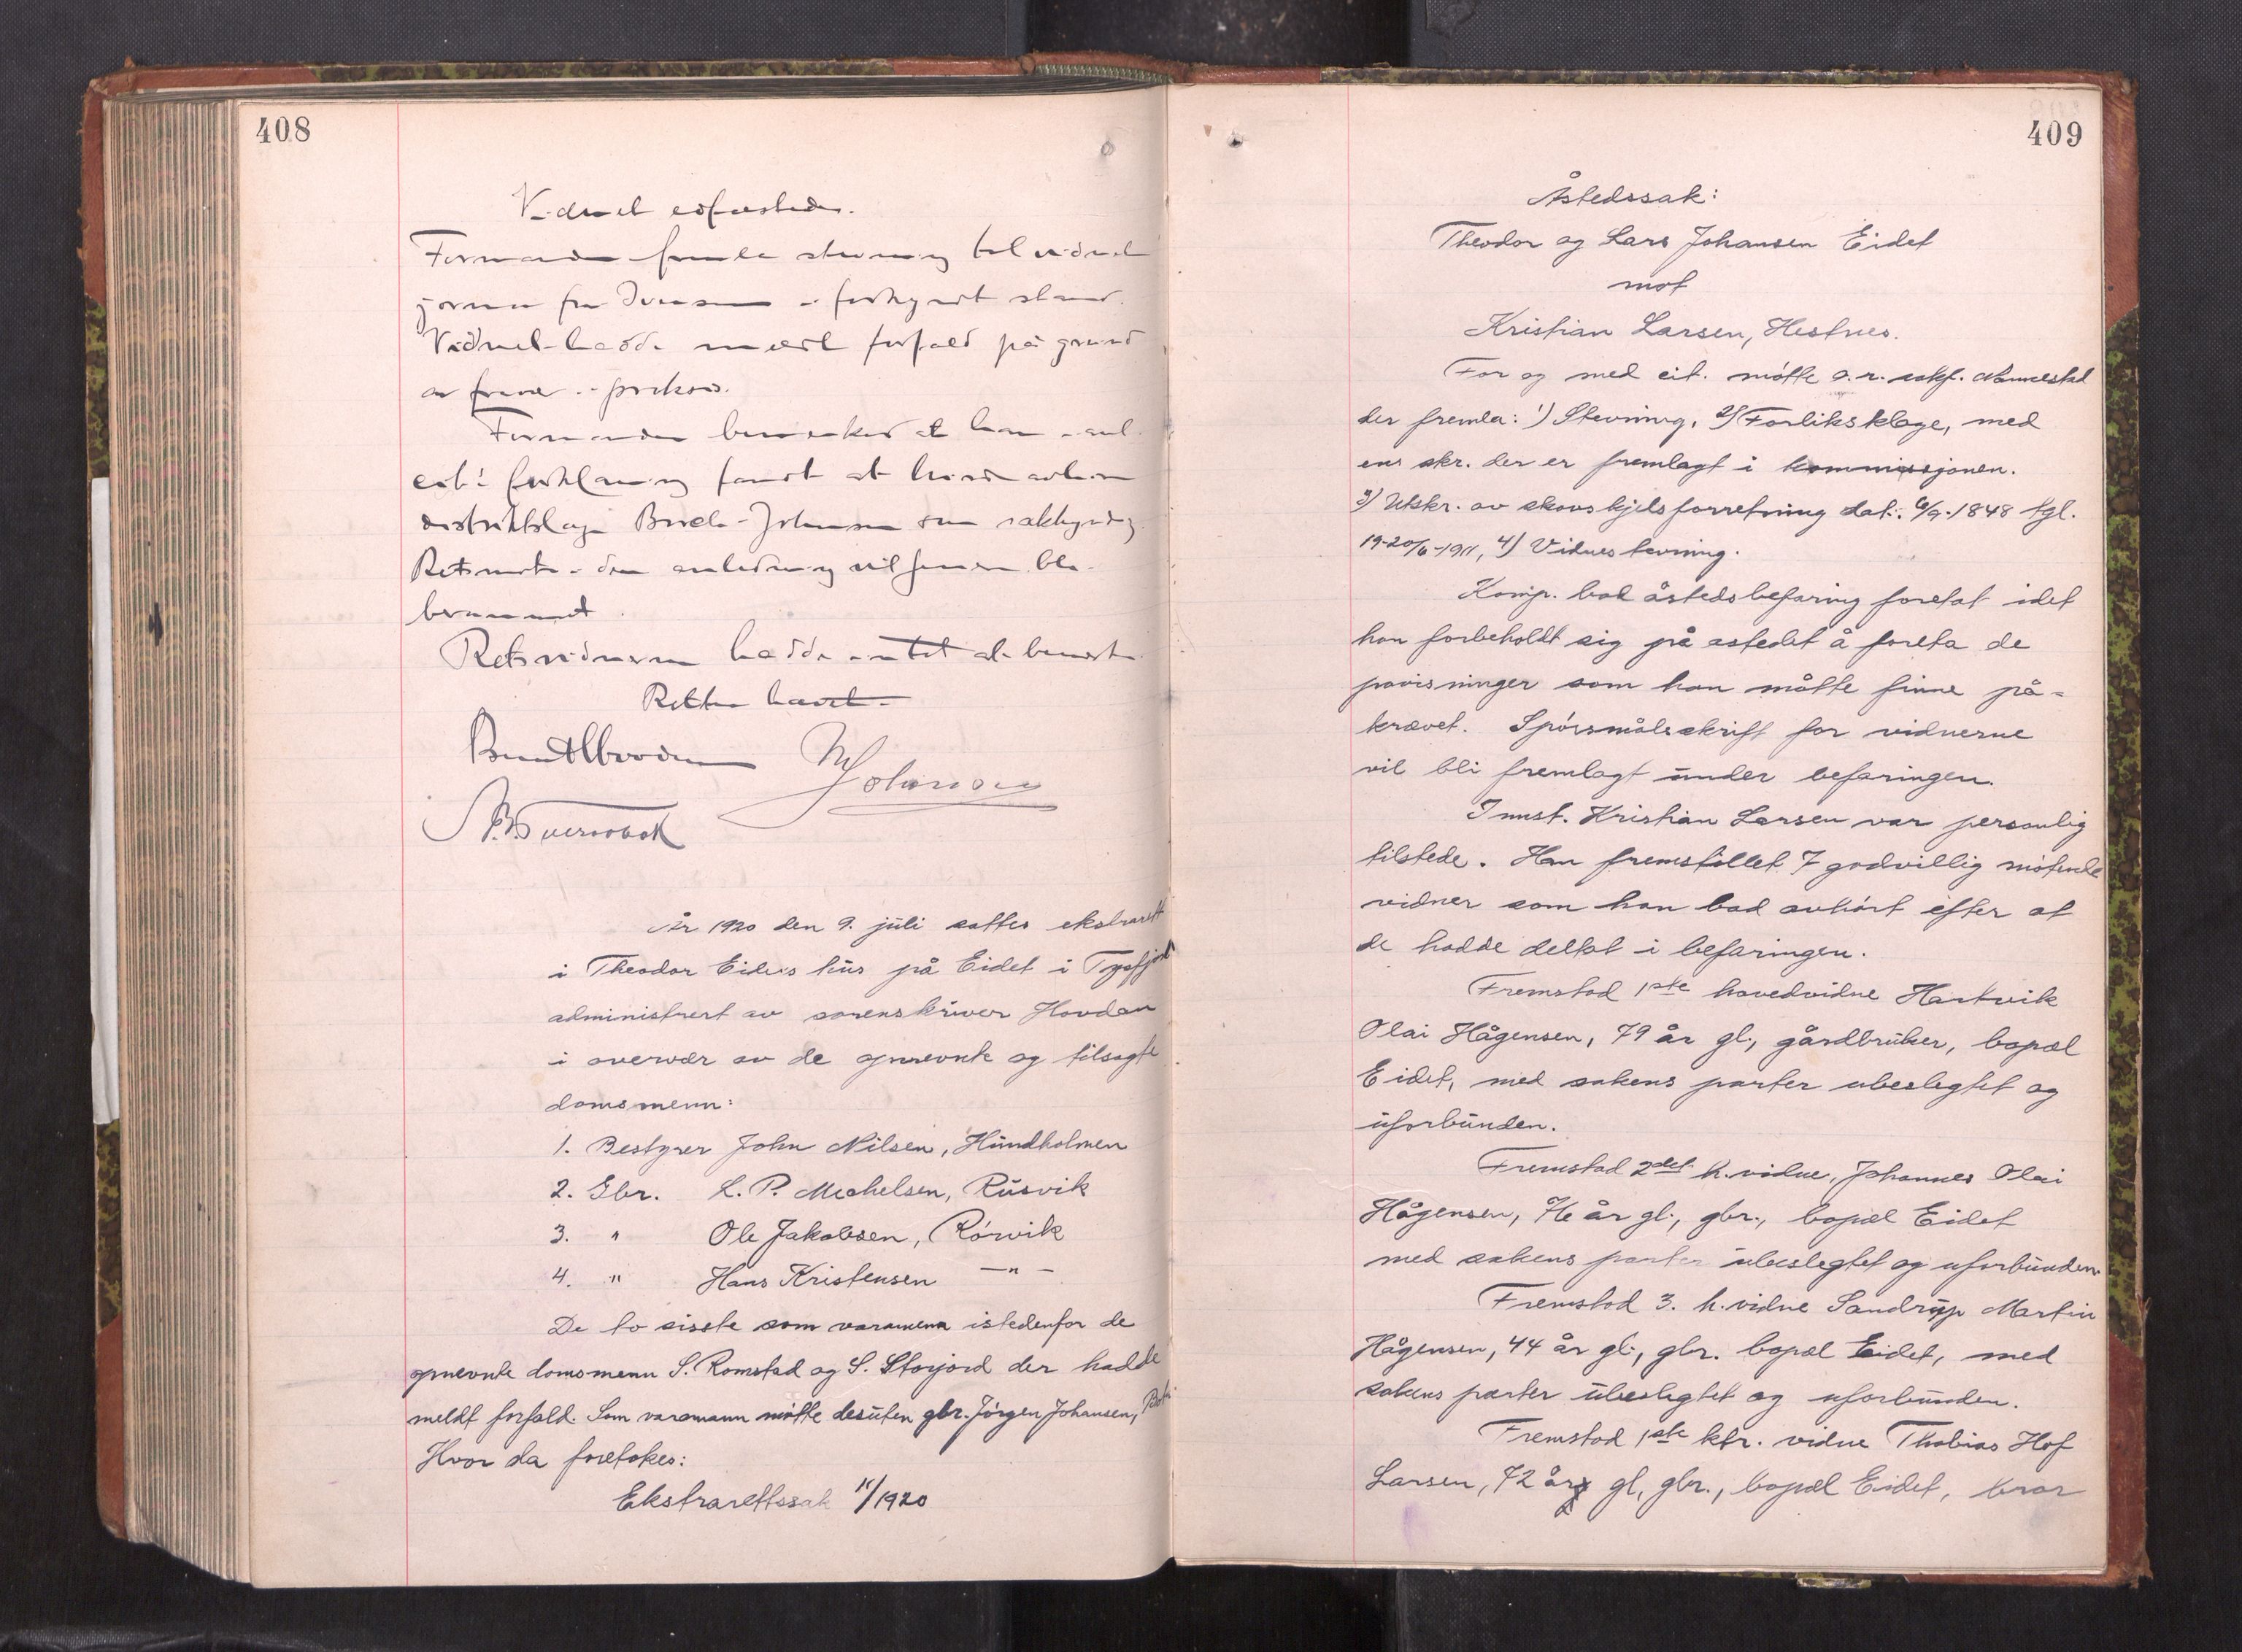 408
Vidnet edfæstedes.
Formanden fremla stevning til vidnet
i forkyndt stand.
Vidnet hadde meldt forfald på grund
av
Formanden bemerket at han
forklaring fandt at burde avhøre
distriktslæge Johnsen som sakkyndig
Retsmøte i den anledning vil senere bli
berammet.
Retsvidnerne hadde intet at bemerke.
Retten hævet.
M Johnsen
År 1920 den 9. juli sattes ekstrarett
i Theodor Eidets hus på Eidet i Tysfjord
administrert av sorenskriver Hovdan
i overvær av de opnevnte og tilsagte
domsmenn:
1. Bestyrer John Nilsen, Hundholmen
2. Gbr. L. P. Michelsen, Rusvik
3. " Ole Jakobsen, Rørvik
4. " Hans Kristensen —"—
De to sisste som varamenn istedenfor de
opnevnte domsmenn S. Romstad og S. Storjord der hadde
meldt forfald. Som varamann møtte desuten gbr. Jørgen Johansen,
Hvor da foretokes:
Ekstrarettssak 11/1920
409
Åstedssak:
Theodor og Lars Johansen Eidet
mot
Kristian Larsen, Hestnes.
For og med cit. møtte o.r.sakf. Nannestad
der fremla: 1) Stevning, 2) Forliksklage, med
ens skr. der er fremlagt i kommissjonen.
3) Utskr. av skovskjelsforretning dat. 6/9-1848 tgl.
19-20/6-1911, 4) Vidnestevning.
Komp. bad åstedsbefaring foretat idet
han forbeholdt sig på astedet å foreta de
pavisninger som han måtte finne på-
krævet. Spørsmålsskrift for vidnerne
vil bli fremlagt under befaringen.
Innst. Kristian Larsen var personlig
tilstede. Han fremstillet 7 godvillig møtende
vidner som han bad avhørt efter at
de hadde deltat i befaringen.
Fremstod 1ste hovedvidne Hartvik
Olai Hågensen, 79 år gl., gårdbruker, bopæl
Eidet, med sakens parter ubeslegtet og
uforbunden.
Fremstod 2det h.vidne, Johannes Olai
Hågensen, 76 år gl., gbr., bopæl Eidet
med sakens parter ubeslegtet og uforbunden.
Fremstod 3. h.vidne Sandrup Martin
Hågensen, 44 år gl., gbr. bopæl Eidet, med
sakens parter ubeslegtet og uforbunden.
Fremstod 1ste ktr. vidne Thobias Hof
Larsen, 72 år gl, gbr., bopæl Eidet, bror